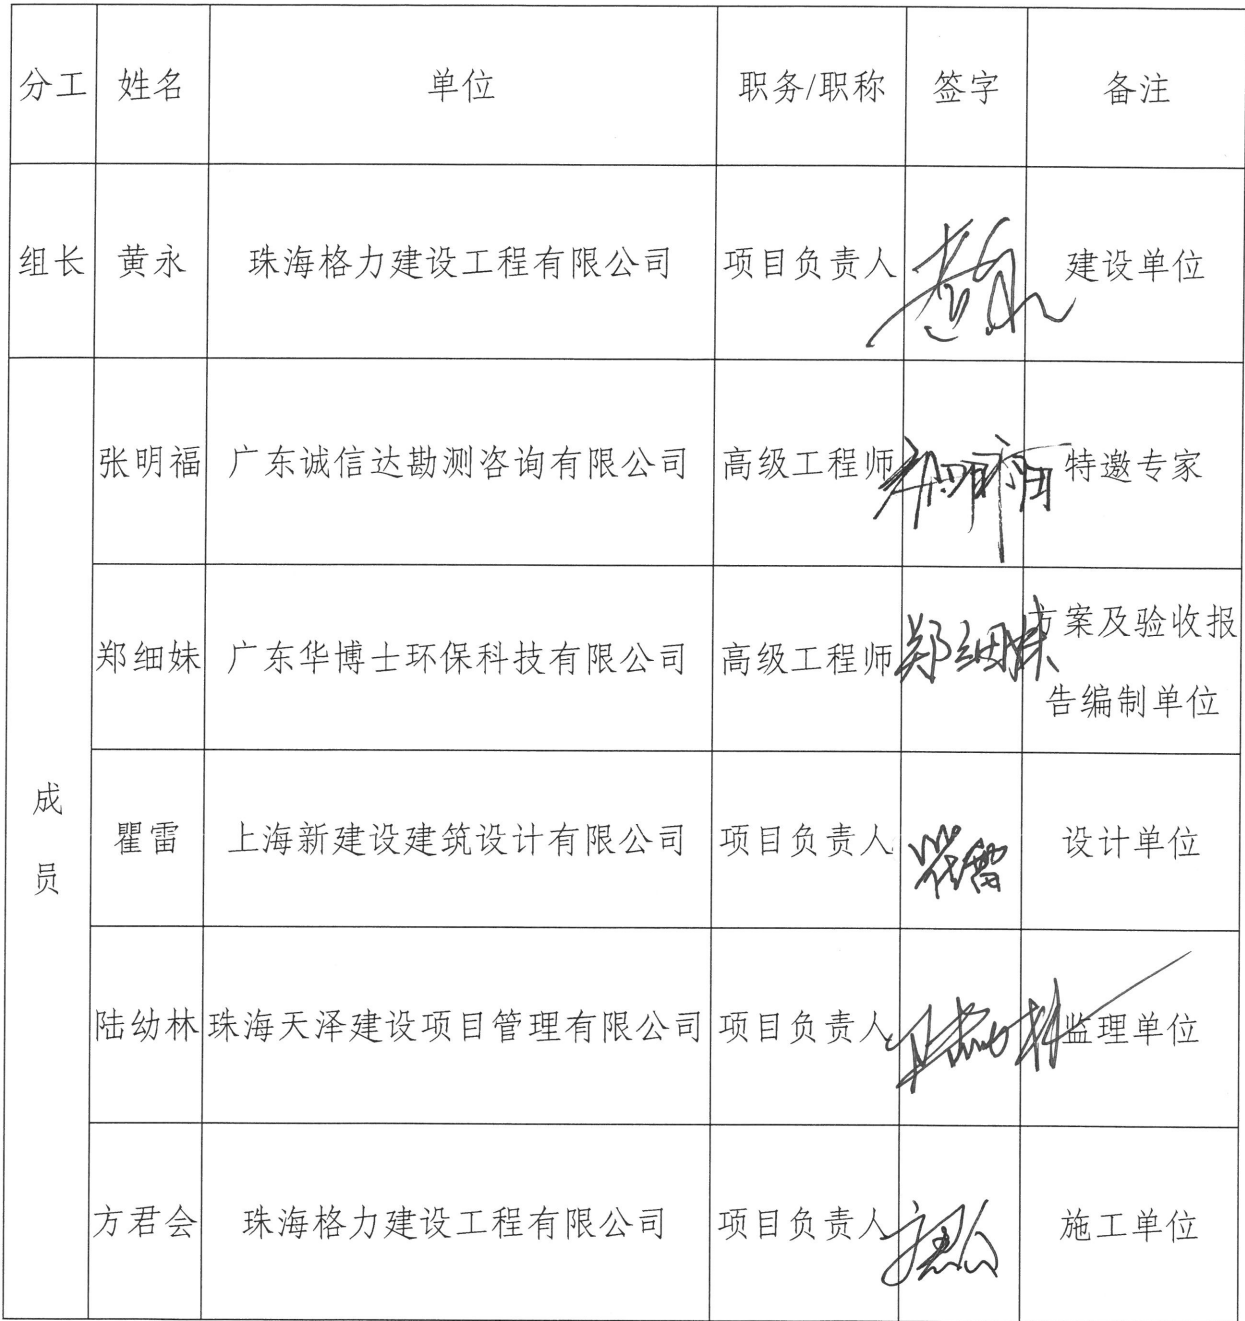 分工 姓名 单位 职务/职称 签字 备注
组长 黄永 珠海格力建设工程有限公司 项目负责人 建设单位
成员
张明福 广东诚信达勘测咨询有限公司 高级工程师 特邀专家
郑细妹 广东华博士环保科技有限公司 高级工程师 郑细妹 方案及验收报
告编制单位
瞿雷 上海新建设建筑设计有限公司 项目负责人 设计单位
陆幼林 珠海天泽建设项目管理有限公司 项目负责人 监理单位
方君会 珠海格力建设工程有限公司 项目负责人 施工单位